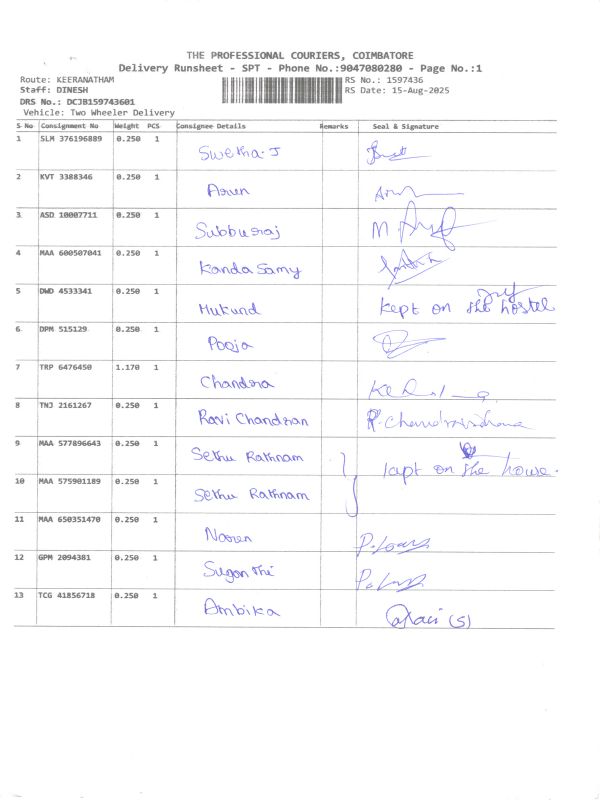 THE PROFESSIONAL COURIERS, COIMBATORE
Delivery Runsheet - SPT - Phone No.:9047080280 - Page No.:1
Route: KEERANATHAM RS No.: 1597436
Staff: DINESH RS Date: 15-Aug-2025
DRS No.: DCJB159743601
Vehicle: Two Wheeler Delivery
S No Consignment No Weight PCS Consignee Details Remarks Seal & Signature
1 SLM 376196889 0.250 1 Swetha.J
2 KVT 3388346 0.250 1 Arun
3 ASD 10007711 0.250 1 Subburaj
4 MAA 600507041 0.250 1 Kanda Samy
5 DWD 4533341 0.250 1 Mukund kept on the hostel
6 DPM 515129 0.250 1 Pooja
7 TRP 6476450 1.170 1 Chandra
8 TNJ 2161267 0.250 1 Ravi Chandran
9 MAA 577896643 0.250 1 Sethu Rathnam kept on the house.
10 MAA 575901189 0.250 1 Sethu Rathnam
11 MAA 650351470 0.250 1
12 GPM 2094381 0.250 1 Sugan thi
13 TCG 41856718 0.250 1 Ambika (S)